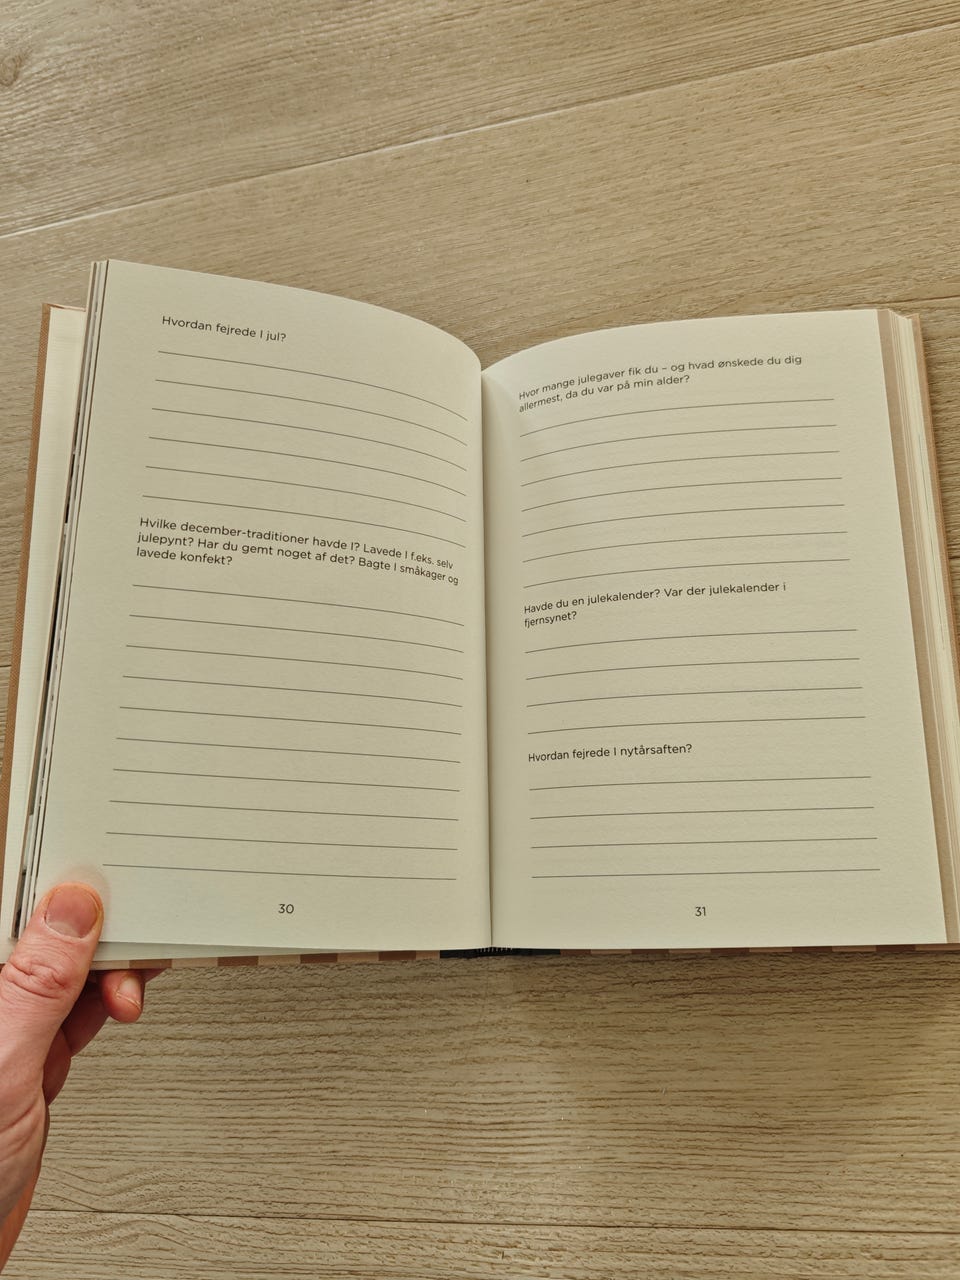 Hvordan fejrede I jul?
Hvilke december-traditioner havde I? Lavede I f.eks. selv
julepynt? Har du gemt noget af det? Bagte I småkager og
lavede konfekt?
30
Hvor mange julegaver fik du – og hvad ønskede du dig
allermest, da du var på min alder?
Havde du en julekalender? Var der julekalender i
fjernsynet?
Hvordan fejrede I nytårsaften?
31